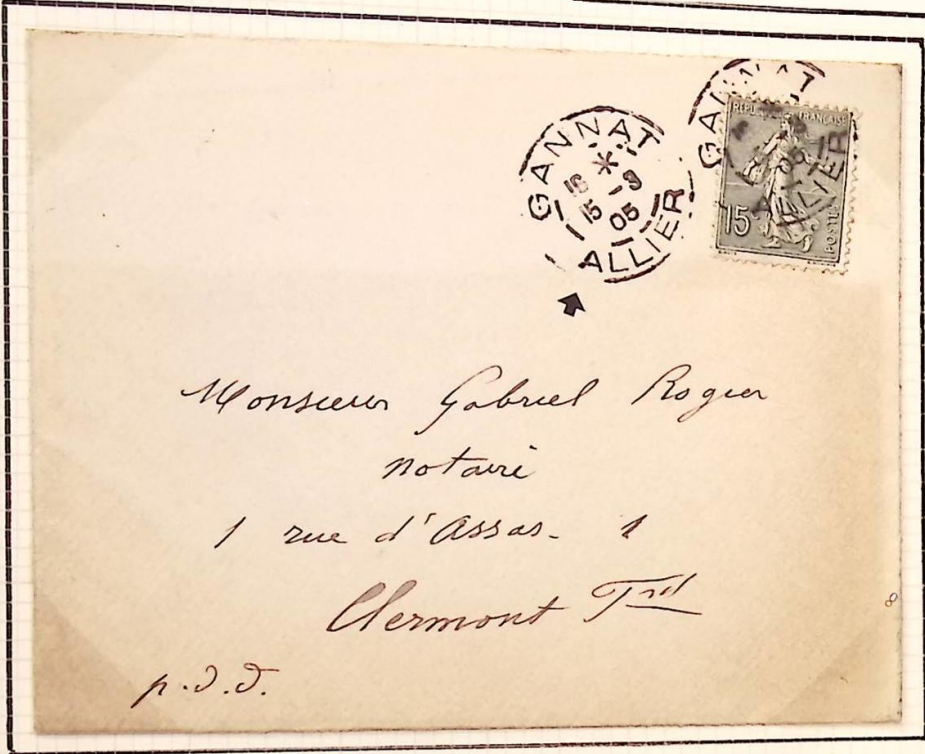 GANNAT
16 * -9
15
05
ALLIER
GANNAT
05
ALLIER
REPUBLIQUE FRANÇAISE
15
POSTES
Monsieur Gabriel Rogier
notaire
1 rue d'Assas. 1
Clermont Frd
p.d.d.
8